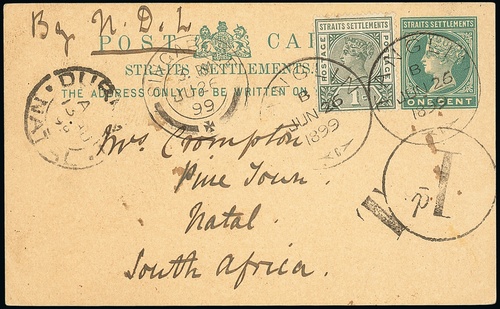 By N. D. L
POST CARD
STRAITS SETTLEMENTS
THE ADDRESS ONLY TO BE WRITTEN ON
STRAITS SETTLEMENTS
POSTAGE
1
STRAITS SETTLEMENTS
ONE CENT
JU 26
99
B
JUN 26
1899
B
JUN 26
DURB
NATAL
Mrs Crompton
Pine Town.
Natal
South Africa.
1
d.